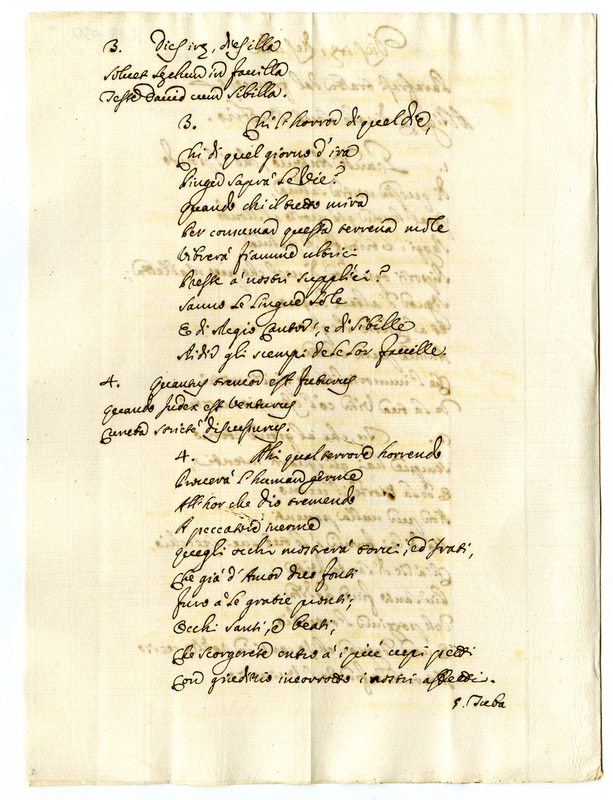 3. Dies irę, dies illa
solvet sęclum in favilla
Teste David cum Sibilla.
3. Chi l'horror di quel die,
Chi di quel giorno d'ira
Pinger saprà le vie?
quando chi il tutto mira
Per consumar questa terrena mole
Vibrerà fiamme ultrici
Preste a' nostri supplici?
sanno le lingue sole
E di Regio Cantor, e di sibille
Ridir gli scempi de le lor faville.
4. Quantus tremor est futurus
quando Judex est venturus
Cuncta stricte discussurus.
4. Ahi qual terrore horrendo
Proverà l'human germe
All'hor che Dio tremendo
A peccatore inerme
quegli occhi mostrerà torvi, ed irati,
Che già d'Amor due fonti
furo a le gratie pronti;
Occhi santi, e beati,
Che scorgerete entro a' i più cupi petti
Con giuditio incorrotto i nostri affetti.
5. Tuba